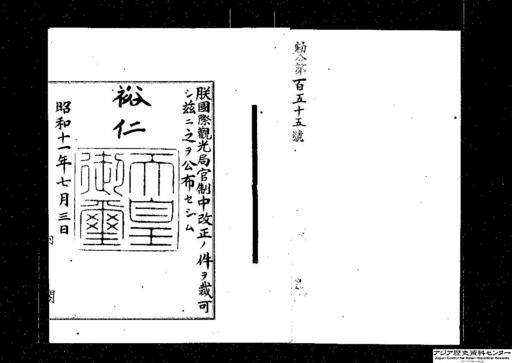 勅令第百五十五號
朕國際觀光局官制中改正ノ件ヲ裁可
シ茲ニ之ヲ公布セシム
裕仁
天皇御璽
昭和十一年七月三日
内閣
アジア歴史資料センター
Japan Center for Asian Historical Records